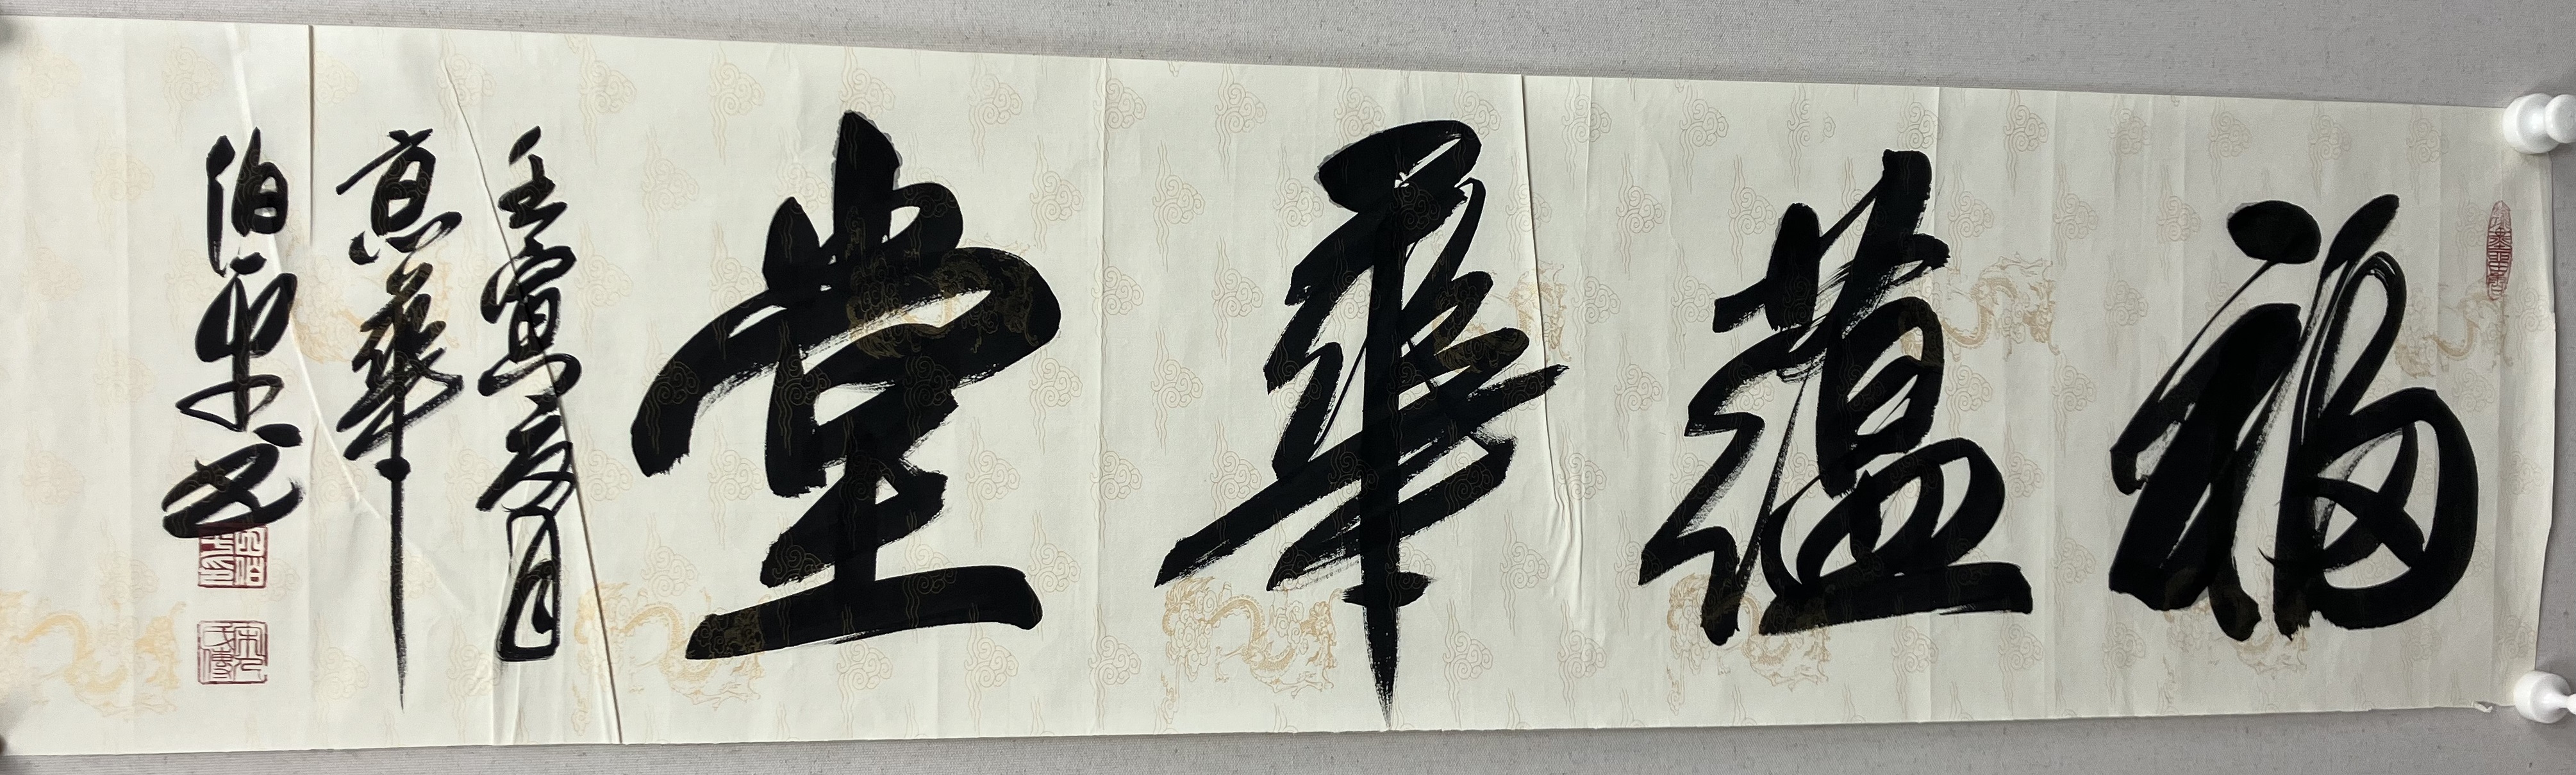 福蕴華堂
壬寅夏月
京華
伯平书